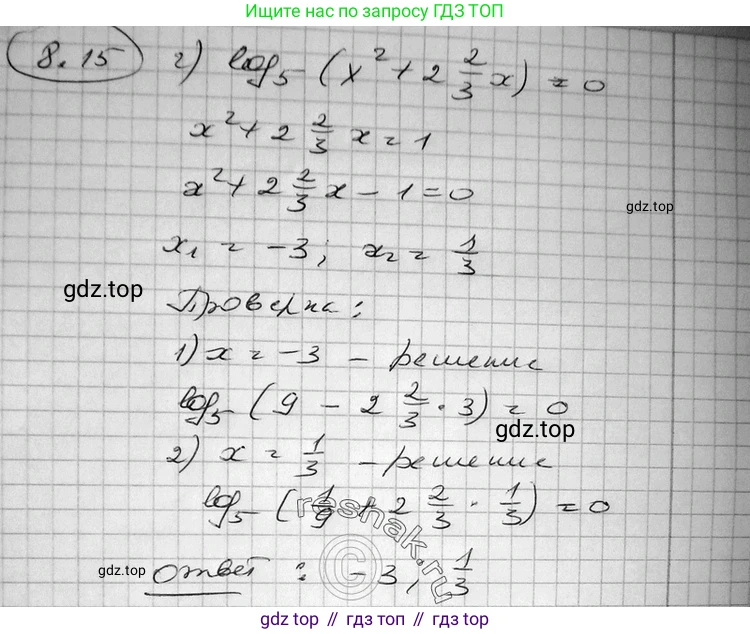 Ищите нас по запросу ГДЗ ТОП
8.15 г) log₅ (x² + 2 2/3 x) = 0
x² + 2 2/3 x = 1
x² + 2 2/3 x - 1 = 0
gdz.top
x₁ = -3; x₂ = 1/3
gdz.top
Проверка:
1) x = -3 - решение
log₅ (9 - 2 2/3 · 3) = 0
gdz.top
2) x = 1/3 - решение
log₅ (1/9 + 2 2/3 · 1/3) = 0
reshak.ru
©
gdz.top
Ответ: -3, 1/3
gdz top // гдз топ // gdz top